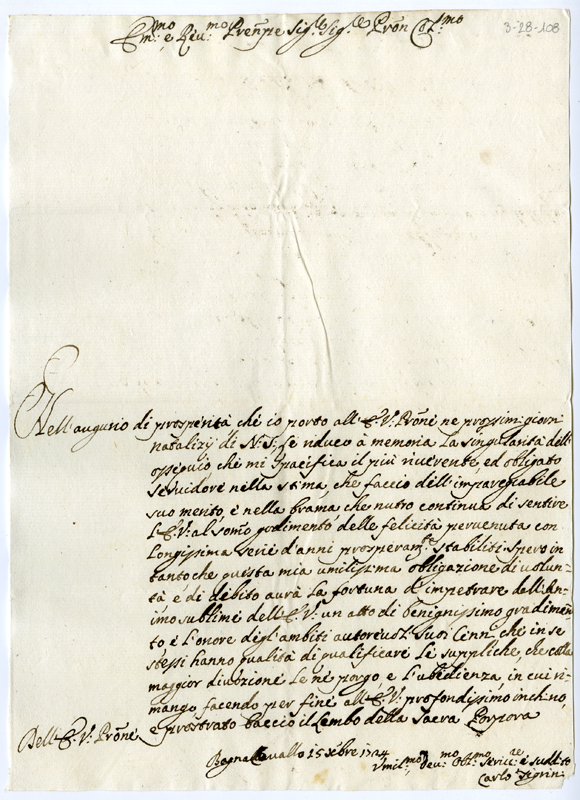 3-28-108
Em:mo e Reu:mo Prenpe Sig:r Sig:re Pron Col:mo
Nell'augurio di prosperità che io porto all'E:V: Prone ne prossimi giorni
natalizij di N:S: se riduco à memoria la singularità dell'
ossequio che mi specifica il più riuerente, ed obligato
seruidore nella stima, che faccio dell'impareggiabile
suo merito, e nella brama che nutro continua di sentire
l'E:V: al somo godimento delle felicità peruenuta con
longissima serie d'anni prosperam:te stabiliti. Spero in
tanto che questa mia umilissima obligazione di uolun=
tà e di debito aurà la fortuna d'impetrare dall'An=
imo sublime dell'E:V: un atto di benignissimo gradimen=
to, e l'onore degl'ambiti autoreuoli suoi Cenni, che in se
stessi hanno qualità di qualificare le suppliche, che colla
maggior diuozione le ne porgo, e l'ubedienza, in cui ri=
mango, facendo per fine all'E:V: profondissimo inchino,
e prostrato baccio il Lembo della Sacra Porpora
Dell'E:V: Prone
Bagnacauallo 15 Xbre 1724
Vmil:mo deu:mo obl:mo seruit:re e suddito
Carlo